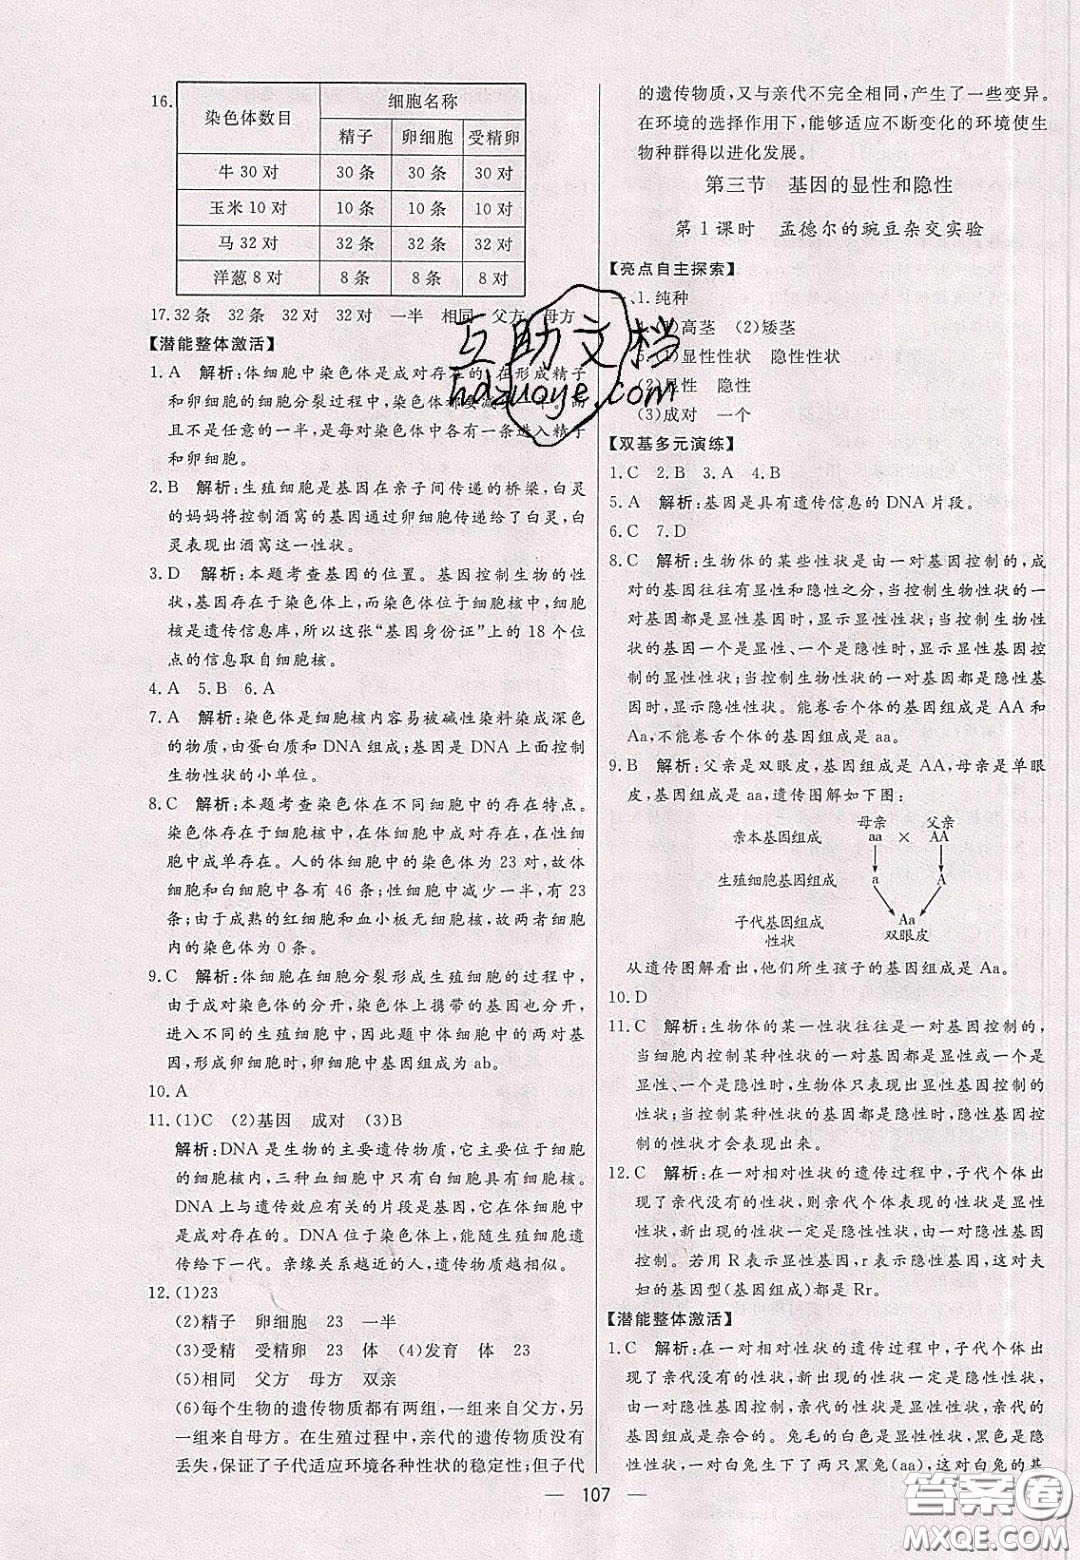 16.
染色体数目 细胞名称
精子 卵细胞 受精卵
牛 30 对 30 条 30 条 30 对
玉米 10 对 10 条 10 条 10 对
马 32 对 32 条 32 条 32 对
洋葱 8 对 8 条 8 条 8 对
17. 32 条 32 条 32 对 32 对 一半 相同 父方 母方
【潜能整体激活】
1. A 解析:体细胞中染色体是成对存在的,在形成精子
和卵细胞的细胞分裂过程中,染色体都要减少一半。而
且不是任意的一半,是每对染色体中各有一条进入精子
和卵细胞。
2. B 解析:生殖细胞是基因在亲子间传递的桥梁,白灵
的妈妈将控制酒窝的基因通过卵细胞传递给了白灵,白
灵表现出酒窝这一性状。
3. D 解析:本题考查基因的位置。基因控制生物的性
状,基因存在于染色体上,而染色体位于细胞核中,细胞
核是遗传信息库,所以这张“基因身份证”上的 18 个位
点的信息取自细胞核。
4. A 5. B 6. A
7. A 解析:染色体是细胞核内容易被碱性染料染成深色
的物质,由蛋白质和 DNA 组成;基因是 DNA 上面控制
生物性状的小单位。
8. C 解析:本题考查染色体在不同细胞中的存在特点。
染色体存在于细胞核中,在体细胞中成对存在,在性细
胞中成单存在。人的体细胞中的染色体为 23 对,故体
细胞和白细胞中各有 46 条;性细胞中减少一半,有 23
条;由于成熟的红细胞和血小板无细胞核,故两者细胞
内的染色体为 0 条。
9. C 解析:体细胞在细胞分裂形成生殖细胞的过程中,
由于成对染色体的分开,染色体上携带的基因也分开,
进入不同的生殖细胞中,因此题中体细胞中的两对基
因,形成卵细胞时,卵细胞中基因组成为 ab。
10. A
11. (1)C (2)基因 成对 (3)B
解析:DNA 是生物的主要遗传物质,它主要位于细胞
的细胞核内,三种血细胞中只有白细胞具有细胞核。
DNA 上与遗传效应有关的片段是基因,它在体细胞中
是成对存在的。DNA 位于染色体上,能随生殖细胞遗
传给下一代。亲缘关系越近的人,遗传物质越相似。
12. (1)23
(2)精子 卵细胞 23 一半
(3)受精 受精卵 23 体 (4)发育 体 23
(5)相同 父方 母方 双亲
(6)每个生物的遗传物质都有两组,一组来自父方,另
一组来自母方。在生殖过程中,亲代的遗传物质没有
丢失,保证了子代适应环境各种性状的稳定性;但子代
的遗传物质,又与亲代不完全相同,产生了一些变异。
在环境的选择作用下,能够适应不断变化的环境使生
物种群得以进化发展。
第三节 基因的显性和隐性
第 1 课时 孟德尔的豌豆杂交实验
【亮点自主探索】
一、1. 纯种
(1)高茎 (2)矮茎
5. (1)显性性状 隐性性状
(2)显性 隐性
(3)成对 一个
【双基多元演练】
1. C 2. B 3. A 4. B
5. A 解析:基因是具有遗传信息的 DNA 片段。
6. C 7. D
8. C 解析:生物体的某些性状是由一对基因控制的,成
对的基因往往有显性和隐性之分,当控制生物性状的一
对基因都是显性基因时,显示显性性状;当控制生物性状
的基因一个是显性、一个是隐性时,显示显性基因控制的
显性性状;当控制生物性状的一对基因都是隐性基
因时,显示隐性性状。能卷舌个体的基因组成是 AA 和
Aa,不能卷舌个体的基因组成是 aa。
9. B 解析:父亲是双眼皮,基因组成是 AA,母亲是单眼
皮,基因组成是 aa,遗传图解如下图:
母亲 父亲
亲本基因组成 aa × AA
生殖细胞基因组成 a A
子代基因组成 Aa
性状 双眼皮
从遗传图解看出,他们所生孩子的基因组成是 Aa。
10. D
11. C 解析:生物体的某一性状往往是一对基因控制的,
当细胞内控制某种性状的一对基因都是显性或一个是
显性、一个是隐性时,生物体只表现出显性基因控制的
性状;当控制某种性状的基因都是隐性时,隐性基因控
制的性状才会表现出来。
12. C 解析:在一对相对性状的遗传过程中,子代个体出
现了亲代没有的性状,则亲代个体表现的性状是显性
性状,新出现的性状一定是隐性性状,由一对隐性基因
控制。若用 R 表示显性基因,r 表示隐性基因,这对夫
妇的基因型(基因组成)都是 Rr。
【潜能整体激活】
1. C 解析:在一对相对性状的遗传过程中,子代个体出
现了亲代没有的性状,新出现的性状一定是隐性性状,
由一对隐性基因控制,亲代的性状是显性性状,亲代的
基因组成是杂合的。兔毛的白色是显性,黑色是隐
性性状,一对白兔生下了两只黑兔(aa),这对白兔的基
107
互助文档
hdzuoye.com
答案圈
MXQE.COM